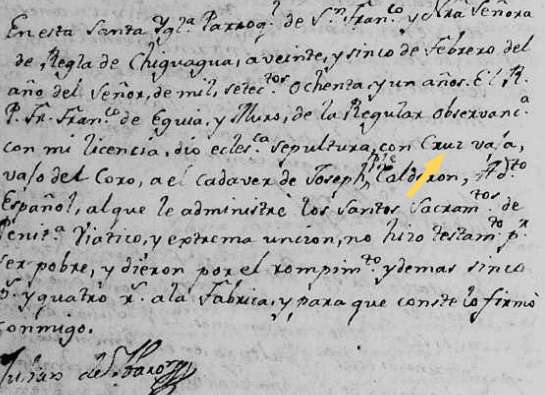 En esta Santa Ygl.ª Parroq.l de S.n Fran.co y Nrâ Señora
de Regla de Chiguagua, a veinte, y sinco de Febrero del
año del Señor, de mil, setec.tos Ochenta, y un años. El R.
P. Fr. Fran.co de Eguia, y Muro, de la Regular observanc.ª
con mi licencia, dio ecles.ca sepultura, con Cruz vaja,
vaso del Coro, a el cadaver de Joseph Calderon, Ad.to
Español, al que le administrè los Santos Sacram.tos de
Penit.ª Viatico, y extrema uncion, no hizo testam.to p.r
ser pobre, y dieron por el rompim.to y demas sinco
p.s y quatro r.s a la Fabrica, y para que conste lo firmò
conmigo.